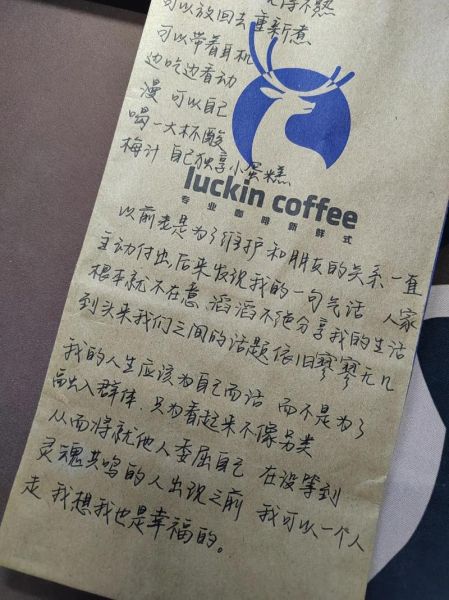 得不熟
可以放回去重新煮
可以带着耳机
边吃边看动
漫 可以自己
喝一大杯酸
梅汁 自己独享小蛋糕
luckin coffee
专业咖啡新鲜式
以前老是为了维护和朋友的关系一直
主动付出,后来发现我的一句气话 人家
根本就不在意 滔滔不绝分享我的生活
到头来我们之间的话题依旧寥寥无几
我的人生应该为自己而活 而不是为了
融入群体.只为看起来不像另类
从而将就他人委屈自己 在没等到
灵魂共鸣的人出现之前 我可以一个人
走 我想我也是幸福的。